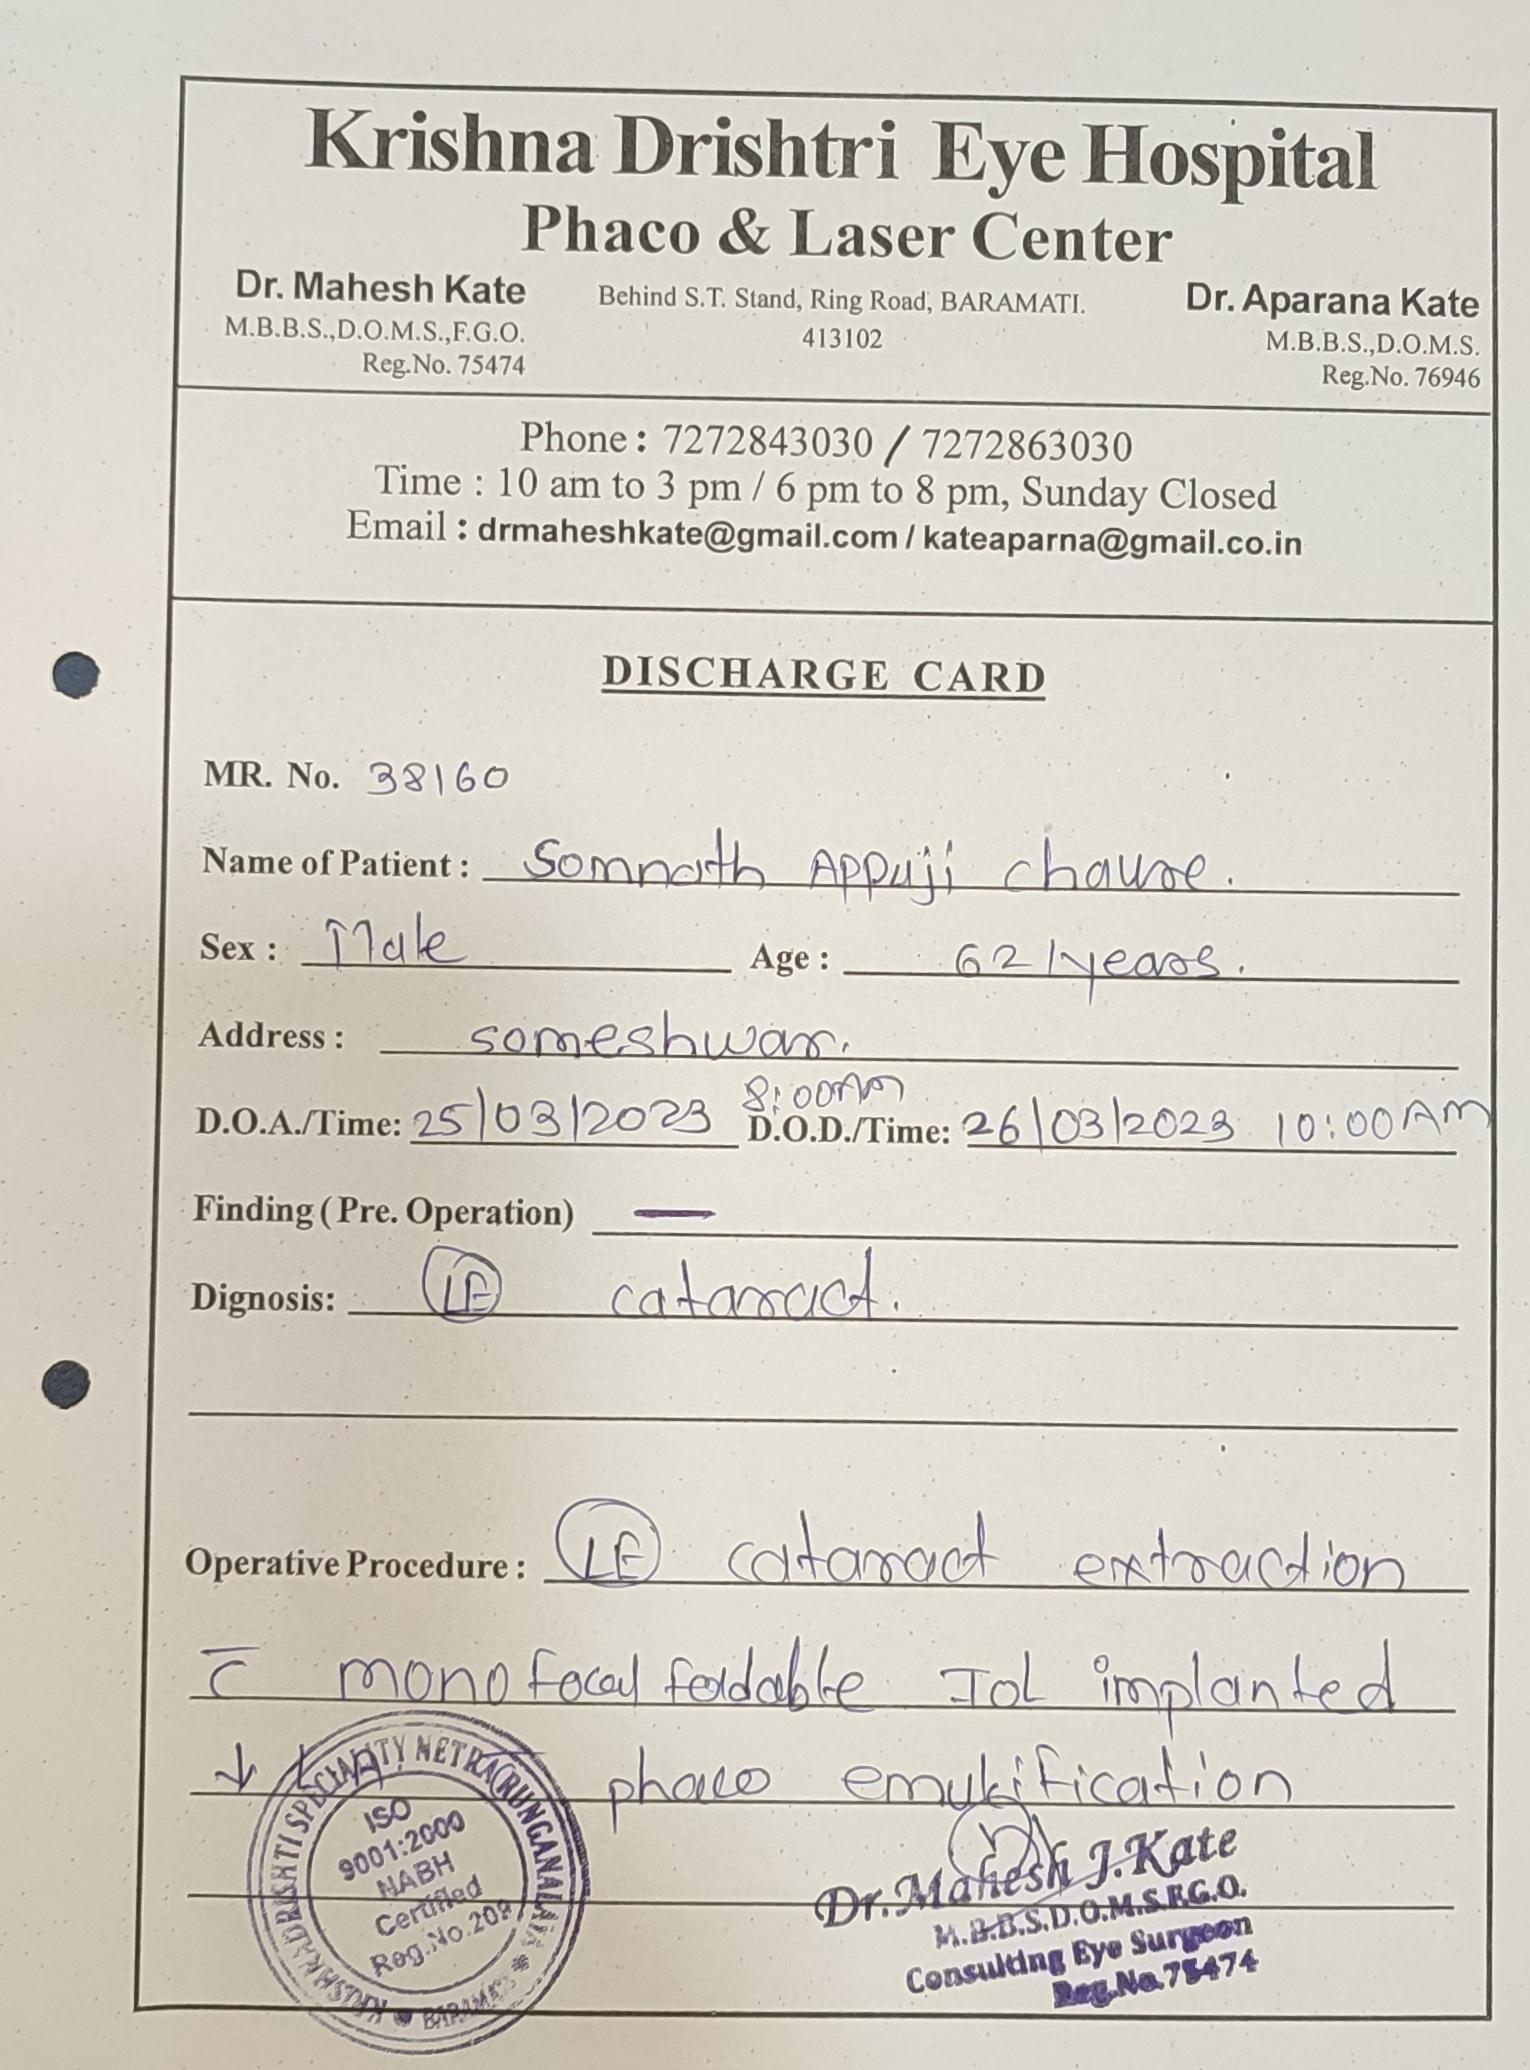 Krishna Drishtri Eye Hospital
Phaco & Laser Center
Dr. Mahesh Kate
M.B.B.S.,D.O.M.S.,F.G.O.
Reg.No. 75474
Behind S.T. Stand, Ring Road, BARAMATI.
413102
Dr. Aparana Kate
M.B.B.S.,D.O.M.S.
Reg.No. 76946
Phone : 7272843030 / 7272863030
Time : 10 am to 3 pm / 6 pm to 8 pm, Sunday Closed
Email : drmaheshkate@gmail.com / kateaparna@gmail.co.in
DISCHARGE CARD
MR. No. 38160
Name of Patient : Somnath Appuji chaure.
Sex : Male Age : 62/years.
Address : someshwar.
D.O.A./Time: 25/03/2023 8:00AM D.O.D./Time: 26/03/2023 10:00AM
Finding ( Pre. Operation) —
Dignosis: LE cataract.
Operative Procedure : LE cataract extraction
c̄ monofocal foldable IOL implanted
↓ phaco emulsification
KRISHNADRISHTI SPECIALITY NETRARUNGANALAYA * BARAMATI
ISO
9001:2000
NABH
Certified
Reg.No.209
Dr.Mahesh J.Kate
M.B.B.S.D.O.M.S.F.G.O.
Consulting Eye Surgeon
Reg.No.75474